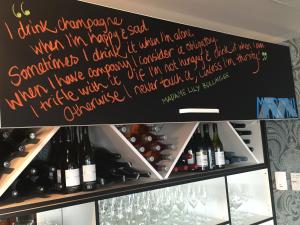 "I drink champagne
when I'm happy & sad
Sometimes I drink it when I'm alone.
When I have company I consider it obligatory
I trifle with it if I'm not hungry & drink it when I am
Otherwise I never touch it, Unless I'm thirsty"
MADAME LILY BOLLINGER